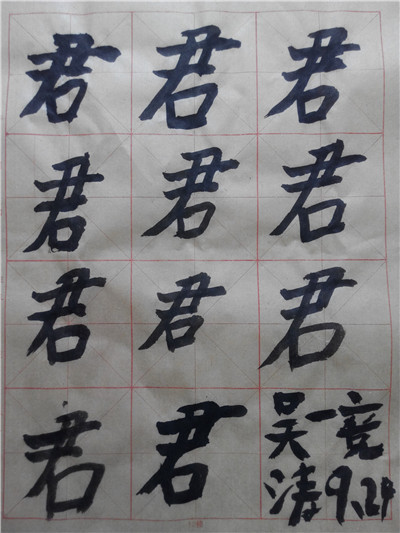 君君君
君君君
君君君
君君
吴一竞
涛9.24